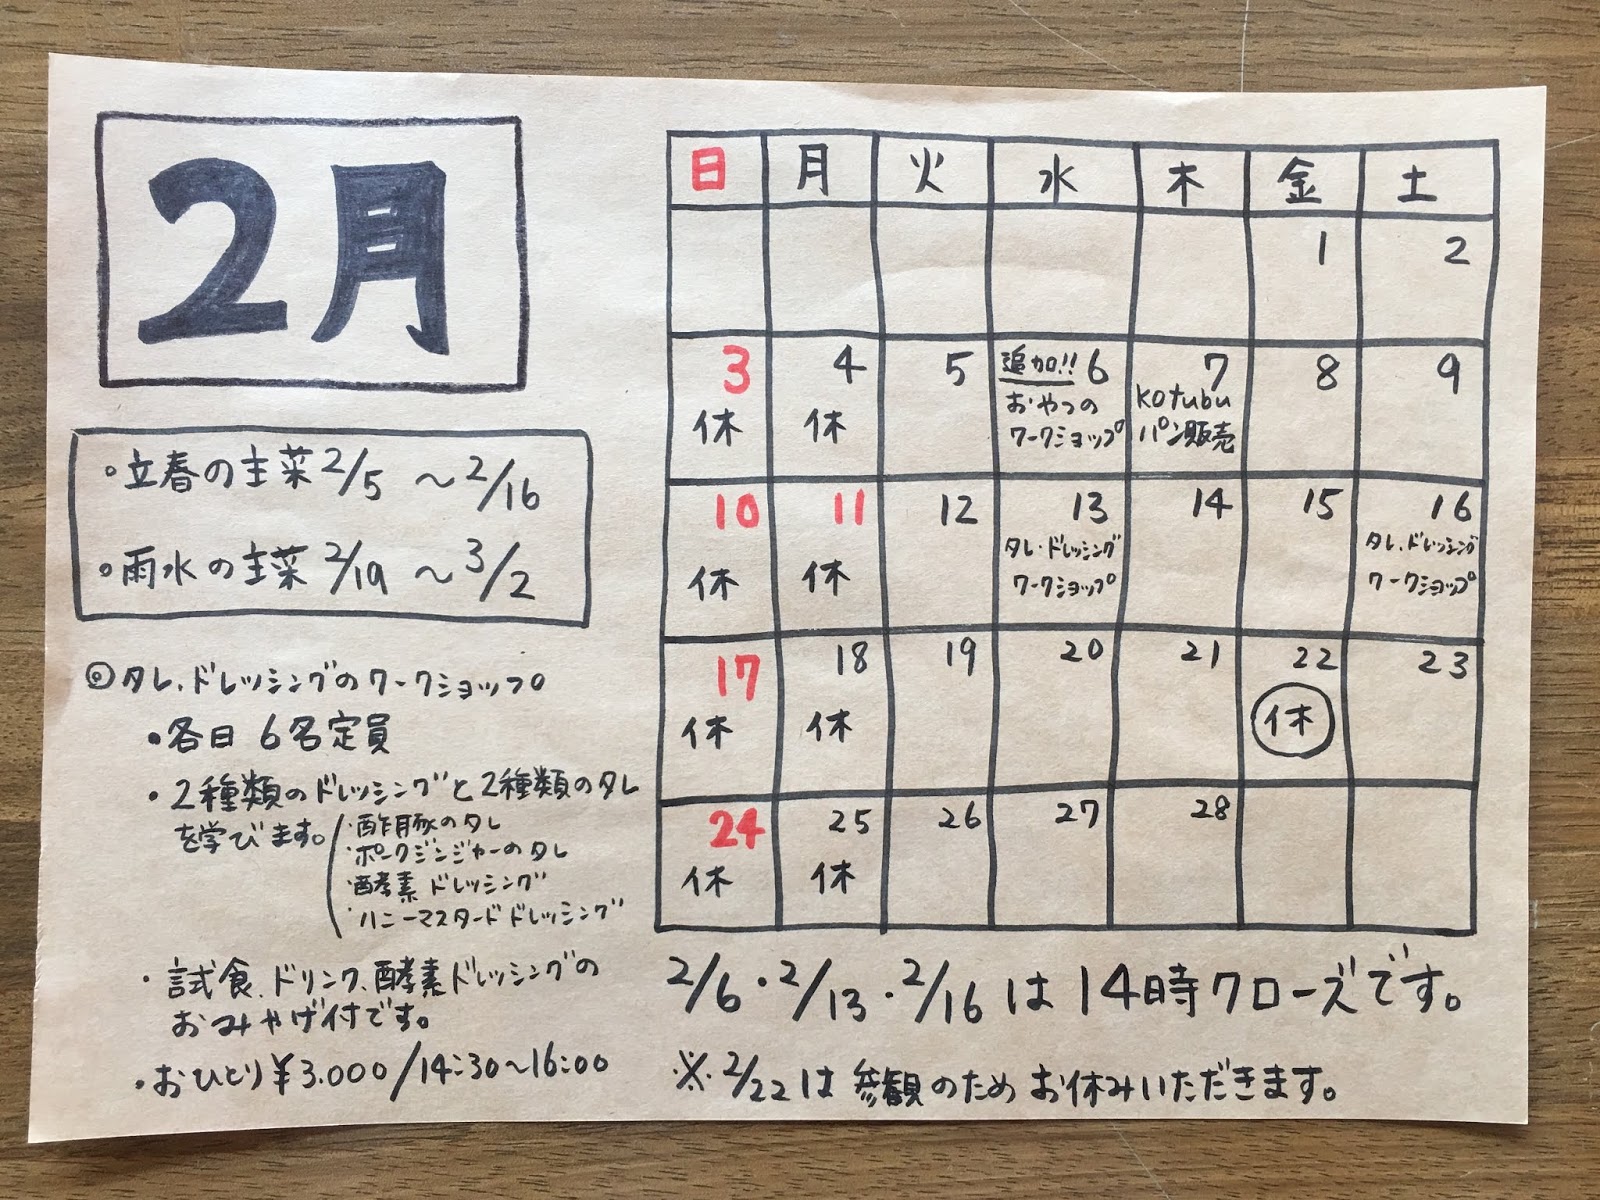 2月
。立春の主菜 2/5 ～ 2/16
。雨水の主菜 2/19 ～ 3/2
◎タレ、ドレッシングのワークショップ
・各日 6名定員
・2種類のドレッシングと2種類のタレ
を学びます。
・酢豚のタレ
・ポークジンジャーのタレ
・酵素ドレッシング
・ハニーマスタードドレッシング
・試食、ドリンク、酵素ドレッシングの
おみやげ付です。
・おひとり¥3.000/14:30～16:00
日 月 火 水 木 金 土
1 2
3 4 5 追加!! 6 7 8 9
休 休 おやつの kotubu
ワークショップ パン販売
10 11 12 13 14 15 16
休 休 タレ・ドレッシング タレ、ドレッシング
ワークショップ ワークショップ
17 18 19 20 21 22 23
休 休 休
24 25 26 27 28
休 休
2/6・2/13・2/16は14時クローズです。
※2/22は参観のためお休みいただきます。